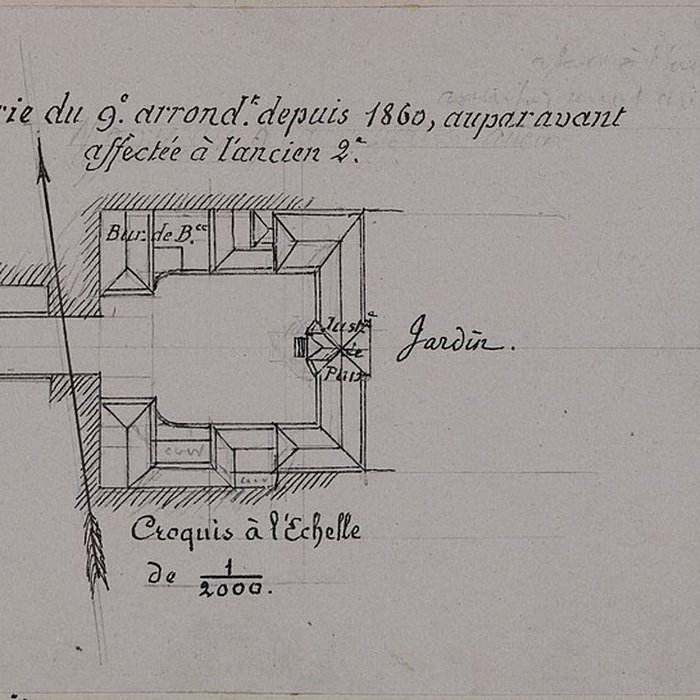 rie du 9e arrondt. depuis 1860, auparavant
affectée à l'ancien 2e.
Bur. de Bce
Justce
de
Paix
Jardin.
cour
Croquis à l'Echelle
de 1/2000.